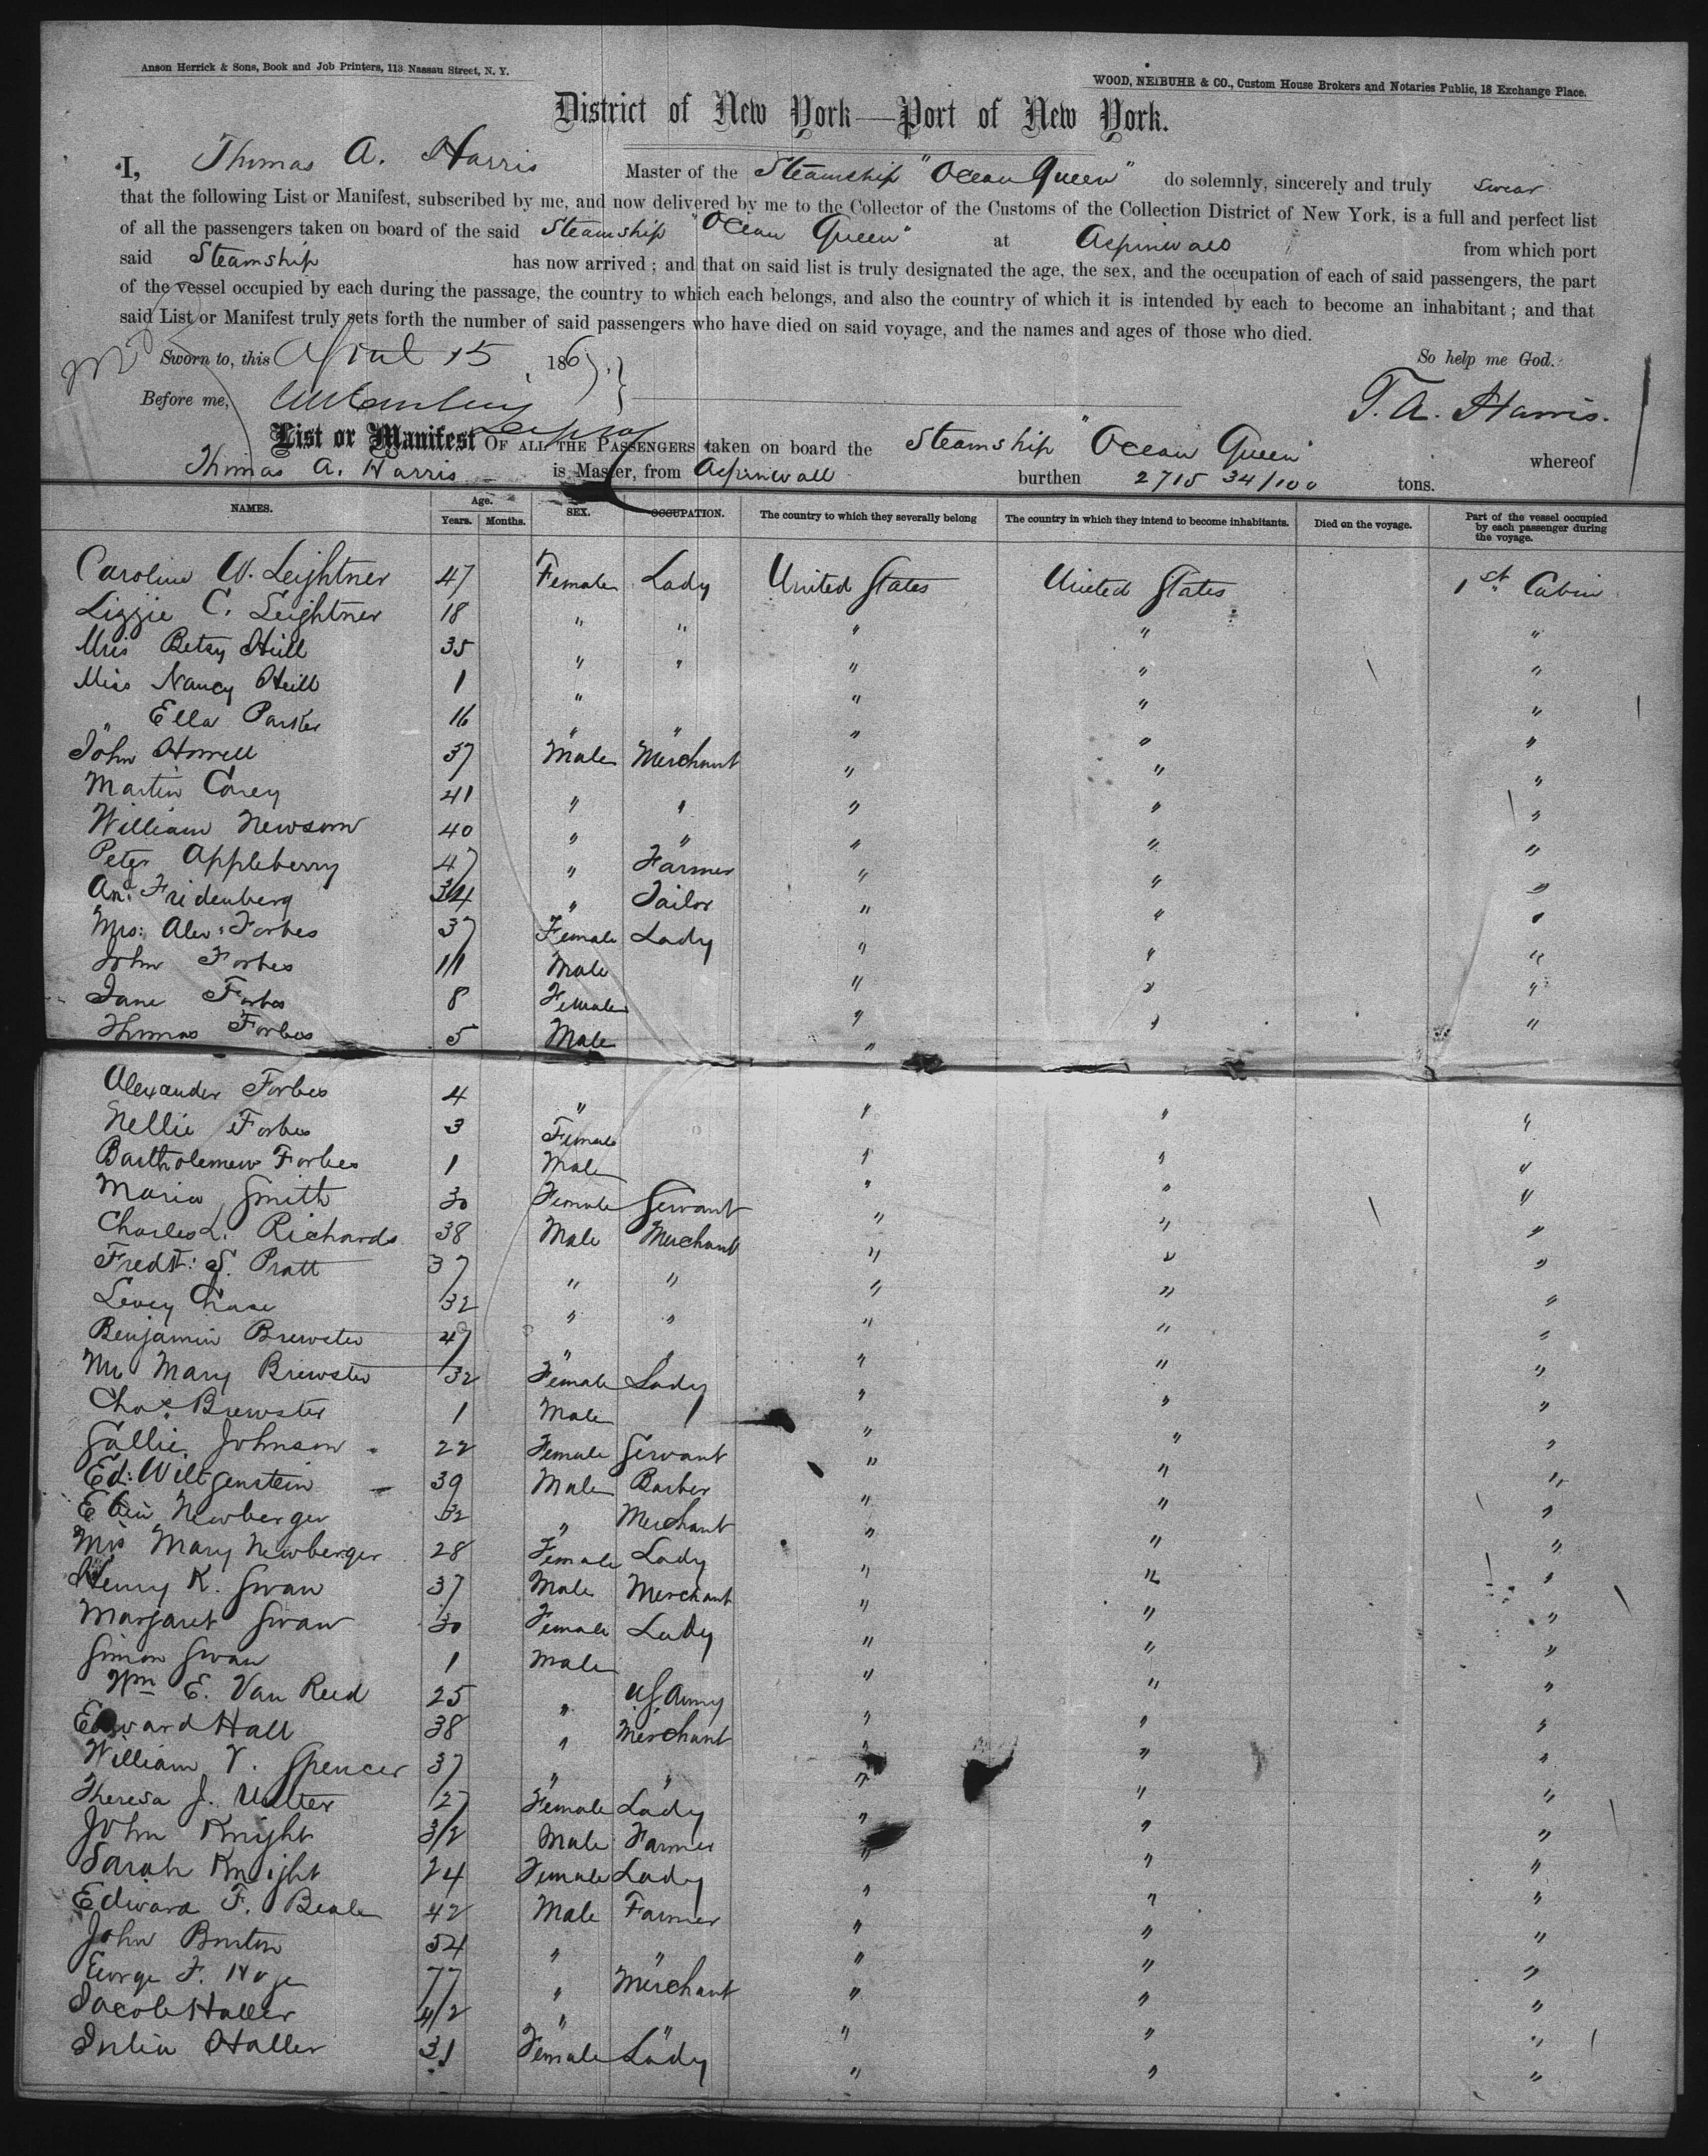 Anson Herrick & Sons, Book and Job Printers, 113 Nassau Street, N. Y.
WOOD, NEIBUHR & CO., Custom House Brokers and Notaries Public, 18 Exchange Place.
District of New York—Port of New York.
I, Thomas A. Harris Master of the Steamship "Ocean Queen" do solemnly, sincerely and truly swear
that the following List or Manifest, subscribed by me, and now delivered by me to the Collector of the Customs of the Collection District of New York, is a full and perfect list
of all the passengers taken on board of the said Steamship "Ocean Queen" at Aspinwall from which port
said Steamship has now arrived; and that on said list is truly designated the age, the sex, and the occupation of each of said passengers, the part
of the vessel occupied by each during the passage, the country to which each belongs, and also the country of which it is intended by each to become an inhabitant; and that
said List or Manifest truly sets forth the number of said passengers who have died on said voyage, and the names and ages of those who died.
Sworn to, this April 15, 1867. So help me God.
Before me, T. A. Harris.
List or Manifest OF ALL THE PASSENGERS taken on board the Steamship "Ocean Queen" whereof
Thomas A. Harris is Master, from Aspinwall burthen 2715 34/100 tons.
NAMES. Age. Years. Months. SEX. OCCUPATION. The country to which they severally belong The country in which they intend to become inhabitants. Died on the voyage. Part of the vessel occupied by each passenger during the voyage.
Caroline W. Leightner 47 Female Lady United States United States 1st Cabin
Lizzie C. Leightner 18 " " " " "
Mrs Betsy Hill 35 " " " " "
Miss Nancy Hill 1 " " " "
" Ella Parker 16 " " " " "
John Howell 37 Male Merchant " " "
Martin Carey 41 " " " " "
William Newsom 40 " " " " "
Peter Appleberry 47 " Farmer " " "
And. Fridenberg 34 " Tailor " " "
Mrs: Alex: Forbes 37 Female Lady " " "
John Forbes 11 Male " " "
Jane Forbes 8 Female " " "
Thomas Forbes 5 Male " " "
Alexander Forbes 4 " " " "
Nellie Forbes 3 Female " " "
Bartholemew Forbes 1 Male " " "
Maria Smith 30 Female Servant " " "
Charles L. Richards 38 Male Merchant " " "
Fredk: S. Pratt 37 " " " " "
Levey Chase 32 " " " " "
Benjamin Brewster 47 " " " " "
Mrs Mary Brewster 32 Female Lady " " "
Chas Brewster 1 Male " " "
Sallie Johnson 22 Female Servant " " "
Ed: Wiltgenstein 39 Male Barber " " "
Newberger 32 " Merchant " " "
Mrs Mary Newberger 28 Female Lady " " "
Henry K. Swan 37 Male Merchant " " "
Margaret Swan 30 Female Lady " " "
Simon Swan 1 Male " " "
Wm E. Van Reed 25 " US Army " " "
Edward Hall 38 " Merchant " " "
William V. Spencer 37 " " " " "
Theresa J. 27 Female Lady " " "
John Knight 32 Male Farmer " " "
Sarah Knight 24 Female Lady " " "
Edward F. Beale 42 Male Farmer " " "
John Burton 54 " " " " "
George F. 77 " Merchant " " "
Jacob Haller 42 " " " " "
Julia Haller 31 Female Lady " " "